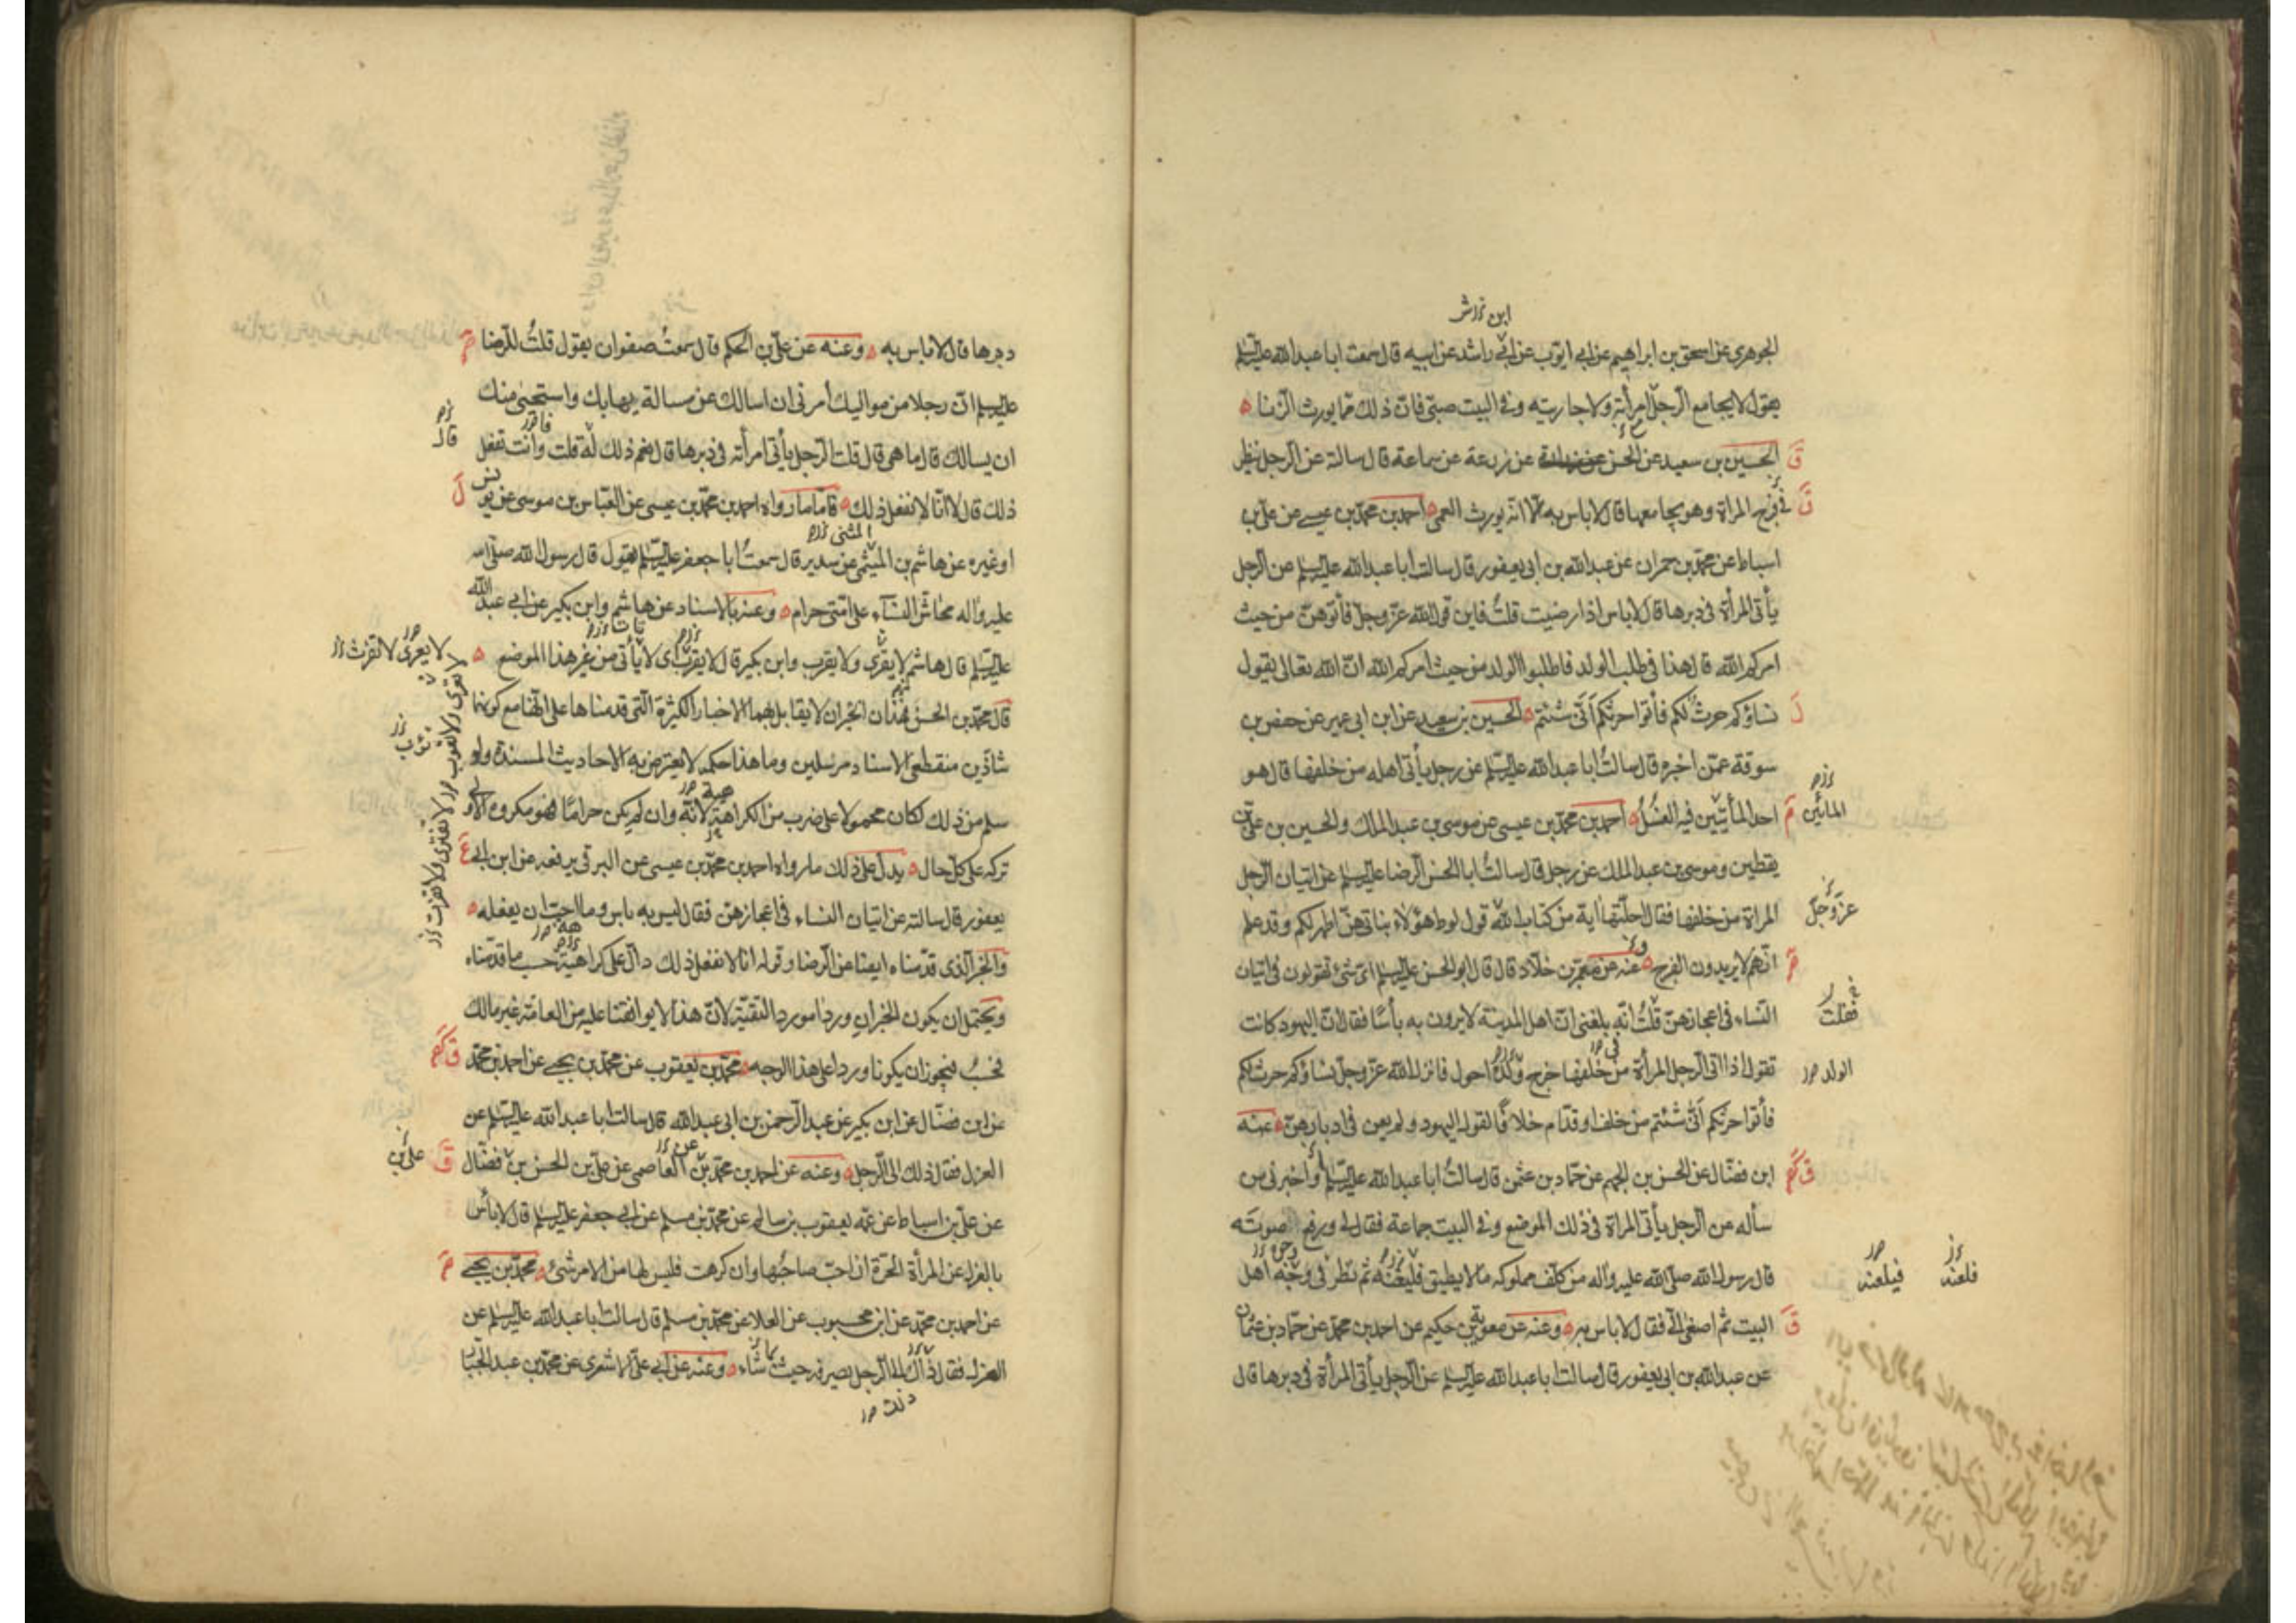 الجوهري عن اسحق بن ابراهيم عن ابي ايوب عن ابن راشد عن ابيه قال سمعت ابا عبد الله عليه السلم
يقول لا يجامع الرجل امرأته ولا جاريته وفي البيت صبي فان ذلك مما يورث الزنا
الحسين بن سعيد عن الحسن عن زرعة عن سماعة قال سالته عن الرجل ينظر
في فرج المراة وهو يجامعها قال لا باس به الا انه يورث العمى احمد بن محمد بن عيسى عن علي بن
اسباط عن محمد بن حمران عن عبد الله بن ابي يعفور قال سالت ابا عبد الله عليه السلم عن الرجل
يأتي المرأة في دبرها قال لا باس اذا رضيت قلت فاين قول الله عز وجل فأتوهن من حيث
امركم الله قال هذا في طلب الولد فاطلبوا الولد من حيث امركم الله ان الله تعالى يقول
نساؤكم حرث لكم فأتوا حرثكم أنى شئتم الحسين بن سعيد عن ابن ابي عمير عن حفص بن
سوقة عمن اخبره قال سالت ابا عبد الله عليه السلم عن رجل يأتي اهله من خلفها قال هو
احد المأتيين فيه الغسل احمد بن محمد بن عيسى عن موسى بن عبد الملك والحسين بن علي بن
يقطين وموسى بن عبد الملك عن رجل قال سالت ابا الحسن الرضا عليه السلم عن اتيان الرجل
المراة من خلفها فقال احلتها اية من كتاب الله قول لوط هؤلاء بناتي هن اطهر لكم وقد علم
انهم لا يريدون الفرج وعنه عن معمر بن خلاد قال قال ابو الحسن عليه السلم اي شيء تقولون في اتيان
النساء في اعجازهن قلت انه بلغني ان اهل المدينة لا يرون به بأسا فقال ان اليهود كانت
تقول اذا اتى الرجل المرأة من خلفها خرج ولده احول فانزل الله عز وجل نساؤكم حرث لكم
فأتوا حرثكم أنى شئتم من خلف او قدام خلافا لقول اليهود ولم يعن في ادبارهن عنه
ابن فضال عن الحسن بن الجهم عن حماد بن عثمن قال سالت ابا عبد الله عليه السلم او اخبرني من
سأله عن الرجل يأتي المراة في ذلك الموضع وفي البيت جماعة فقال لي ورفع صوته
قال رسول الله صلى الله عليه واله من كلف مملوكه ما لا يطيق فليعنه ثم نظر في وجه اهل
البيت ثم اصغى الي فقال لا باس به وعنه عن معوية بن حكيم عن احمد بن محمد عن حماد بن عثمان
عن عبد الله بن ابي يعفور قال سالت ابا عبد الله عليه السلم عن الرجل يأتي المرأة في دبرها قال
المائين
عز وجل
فقلت
الولد
فيلعنه
فلعنه
دبرها قال لا باس به وعنه عن علي بن الحكم قال سمعت صفوان يقول قلت للرضا
عليه السلم ان رجلا من مواليك أمرني ان اسالك عن مسالة يهابك واستحيى منك
ان يسالك قال ما هي قال قلت الرجل يأتي امرأته في دبرها قال نعم ذلك له قلت وأنت تفعل
ذلك قال لا انا لا نفعل ذلك فاما ما رواه احمد بن محمد بن عيسى عن العباس بن موسى عن يونس
او غيره عن هاشم بن المثنى عن سدير قال سمعت ابا جعفر عليه السلم يقول قال رسول الله صلى الله
عليه واله محاش النساء على امتي حرام وعنه بالاسناد عن هاشم وابن بكير عن ابي عبد الله
عليه السلم قال هاشم لا يفرى ولا يقرب وابن بكير قال لا يقرب اي لا يأتي من غير هذا الموضع
قال محمد بن الحسن فهذان الخبران لا يقابل بهما الاخبار الكثيرة التي قدمناها على انهما مع كونهما
شاذين منقطعي الاسناد مرسلين وما هذا حكمه لا يعترض به الاحاديث المسندة ولو
سلم من ذلك لكان محمولا على ضرب من الكراهة لانه وان لم يكن حراما فهو مكروه الاولى
تركه على كل حال يدل على ذلك ما رواه احمد بن محمد بن عيسى عن البرقي يرفعه عن ابن ابي
يعفور قال سالته عن اتيان النساء في اعجازهن فقال ليس به باس وما احب ان يفعله
والخبر الذي قدمناه ايضا عن الرضا وقوله انا لا نفعل ذلك دال على كراهية حسب ما قدمناه
ويحتمل ان يكون الخبران وردا مورد التقية لان هذا لا يوافقنا عليه من العامة غير مالك
فحسب فيجوز ان يكونا وردا على هذا الوجه محمد بن يعقوب عن محمد بن يحيى عن احمد بن محمد
عن ابن فضال عن ابن بكير عن عبد الرحمن بن ابي عبد الله قال سالت ابا عبد الله عليه السلم عن
العزل فقال ذلك الى الرجل وعنه عن احمد بن محمد بن العاصمي عن علي بن الحسن بن فضال
عن علي بن اسباط عن عمه يعقوب بن سالم عن محمد بن مسلم عن ابي جعفر عليه السلم قال لا بأس
بالعزل عن المرأة الحرة ان احب صاحبها وان كرهت فليس لها من الامر شيء محمد بن يحيى
عن احمد بن محمد عن ابن محبوب عن العلا عن محمد بن مسلم قال سالت ابا عبد الله عليه السلم عن
العزل فقال ذاك الى الرجل يصرفه حيث شاء وعنه عن ابي علي الاشعري عن محمد بن عبد الجبار
قال
علي بن